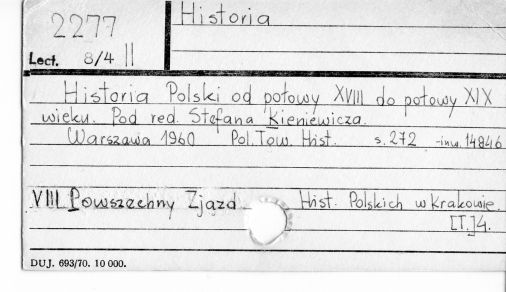 2277
Historia
Lect. 8/4 II
Historia Polski od połowy XVIII do połowy XIX
wieku. Pod red. Stefana Kieniewicza.
Warszawa 1960 Pol. Tow. Hist. s. 272 inw. 14846
VIII Powszechny Zjazd Hist. Polskich w Krakowie.
[T.]4.
DUJ. 693/70. 10 000.